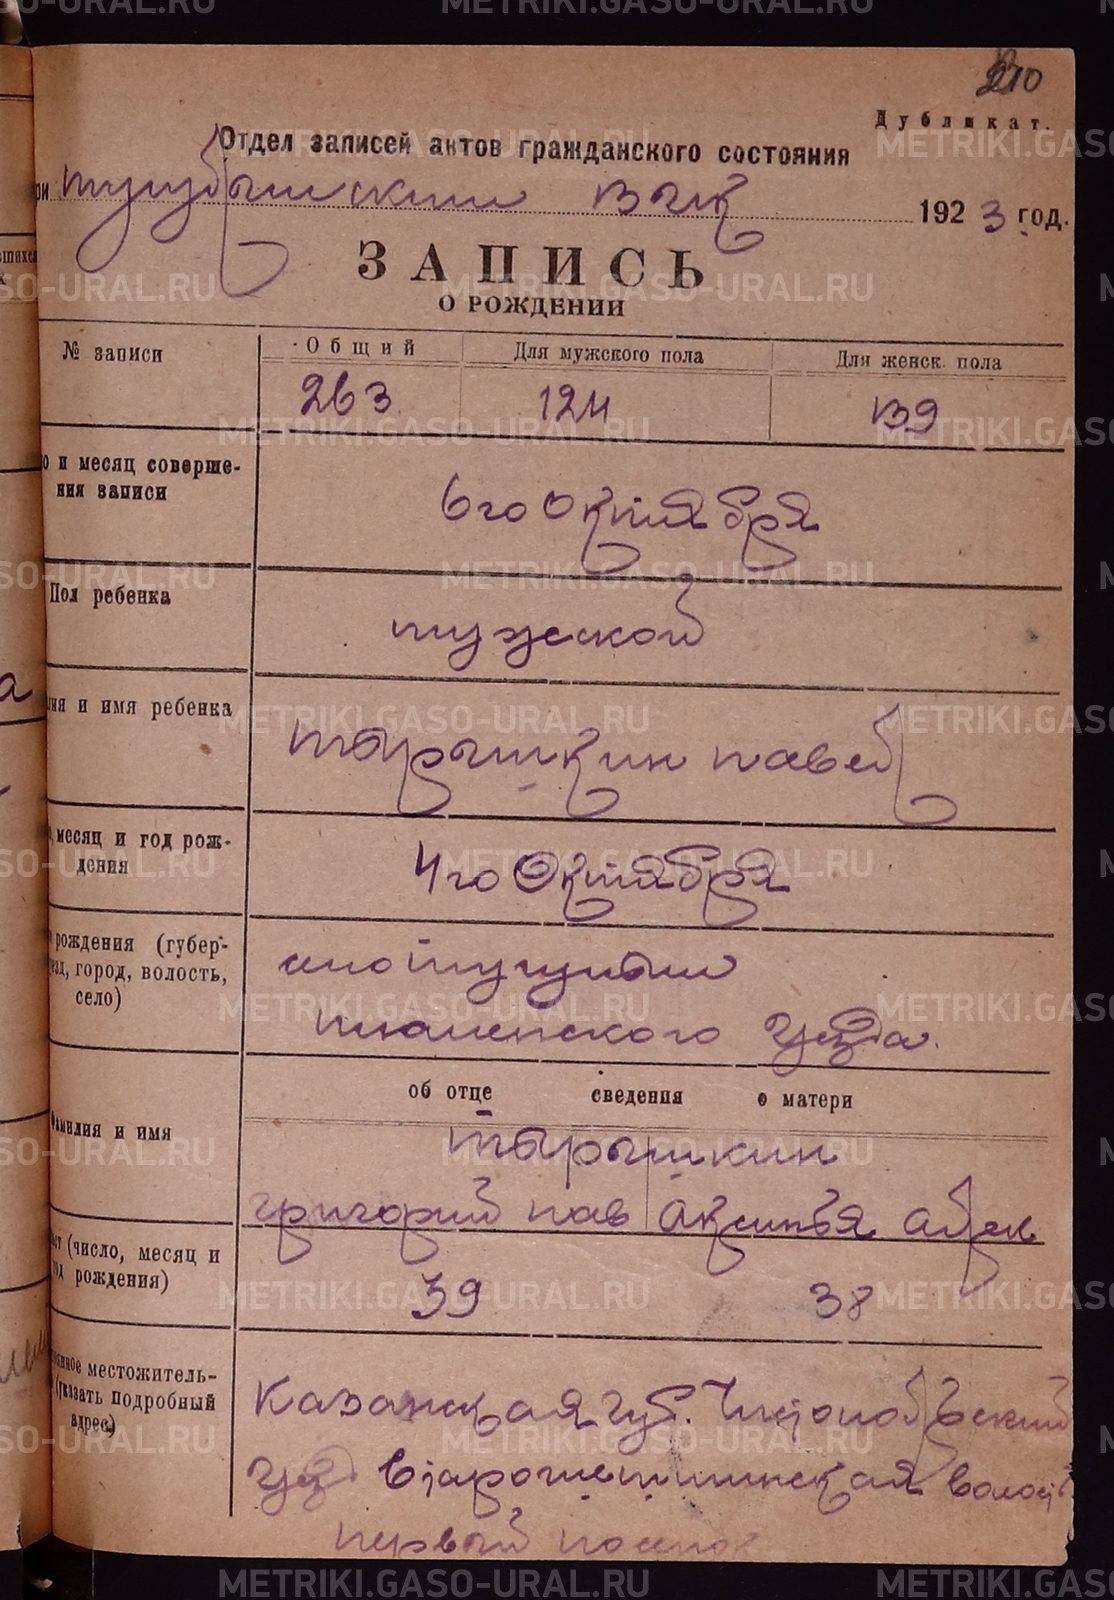 210
Дубликат.
Отдел записей актов гражданского состояния
ри тугулымским вик 1923 год.
ЗАПИСЬ
О РОЖДЕНИИ
№ записи Общий Для мужского пола Для женск. пола
263 124 139
о и месяц соверше-
ния записи
6го Октября
Пол ребенка мужской
ия и имя ребенка
тарышкин павел
месяц и год рож-
дения
4го Октября
рождения (губер-
езд, город, волость,
село)
тюменского уезда.
об отце сведения о матери
Фамилия и имя тарышкин
григорий пав Аксинья
ст (число, месяц и
од рождения)
39 38
янное местожитель-
(указать подробный
адрес)
Казанская губ.
уез волость
первый
METRIKI.GASO-URAL.RU